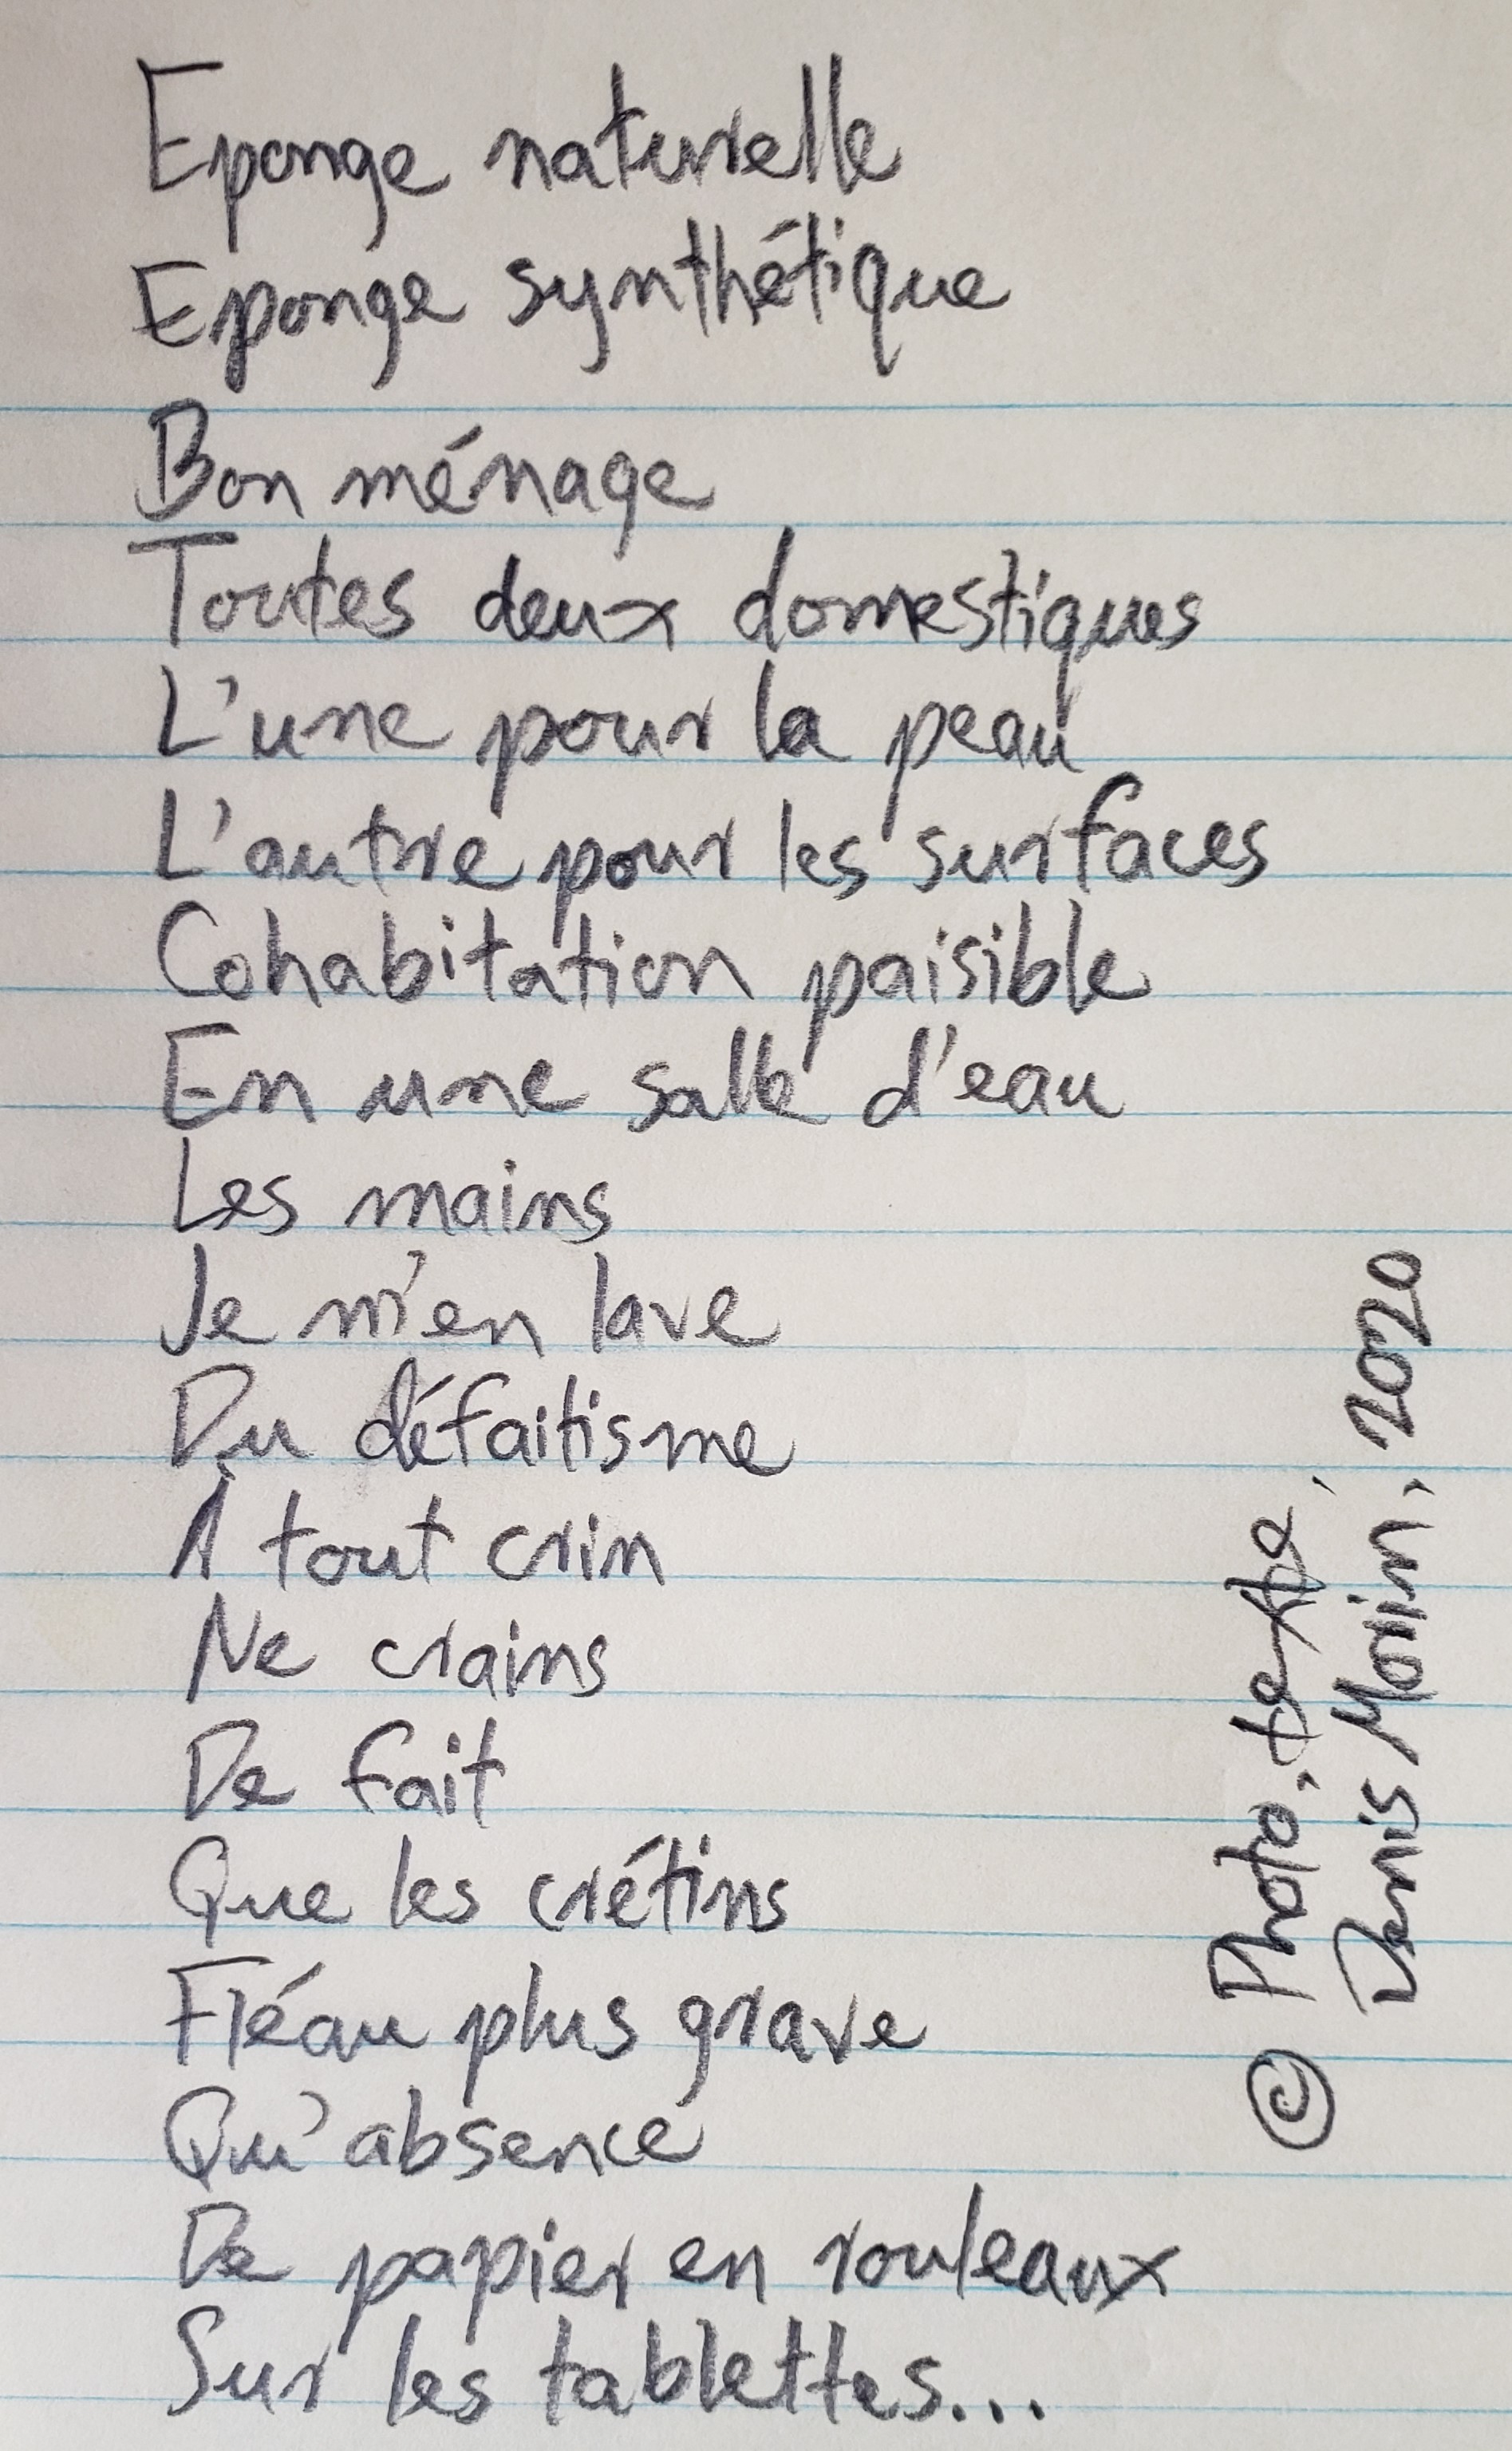 Eponge naturelle
Eponge synthétique
Bon ménage
Toutes deux domestiques
L'une pour la peau
L'autre pour les surfaces
Cohabitation paisible
En une salle d'eau
Les mains
Je m'en lave
Du défaitisme
À tout crin
Ne crains
De fait
Que les crétins
Fléau plus grave
Qu'absence
De papier en rouleaux
Sur les tablettes...
© Photo, texte,
Denis Morin, 2020